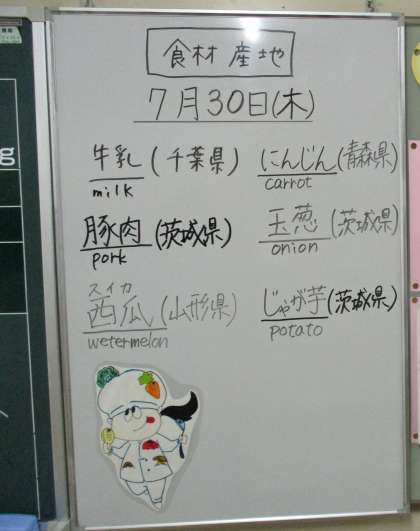 食材 産地
7月30日(木)
牛乳(千葉県)
milk
にんじん(青森県)
carrot
豚肉(茨城県)
pork
玉葱(茨城県)
onion
スイカ
西瓜(山形県)
wetermelon
じゃが芋(茨城県)
potato
g